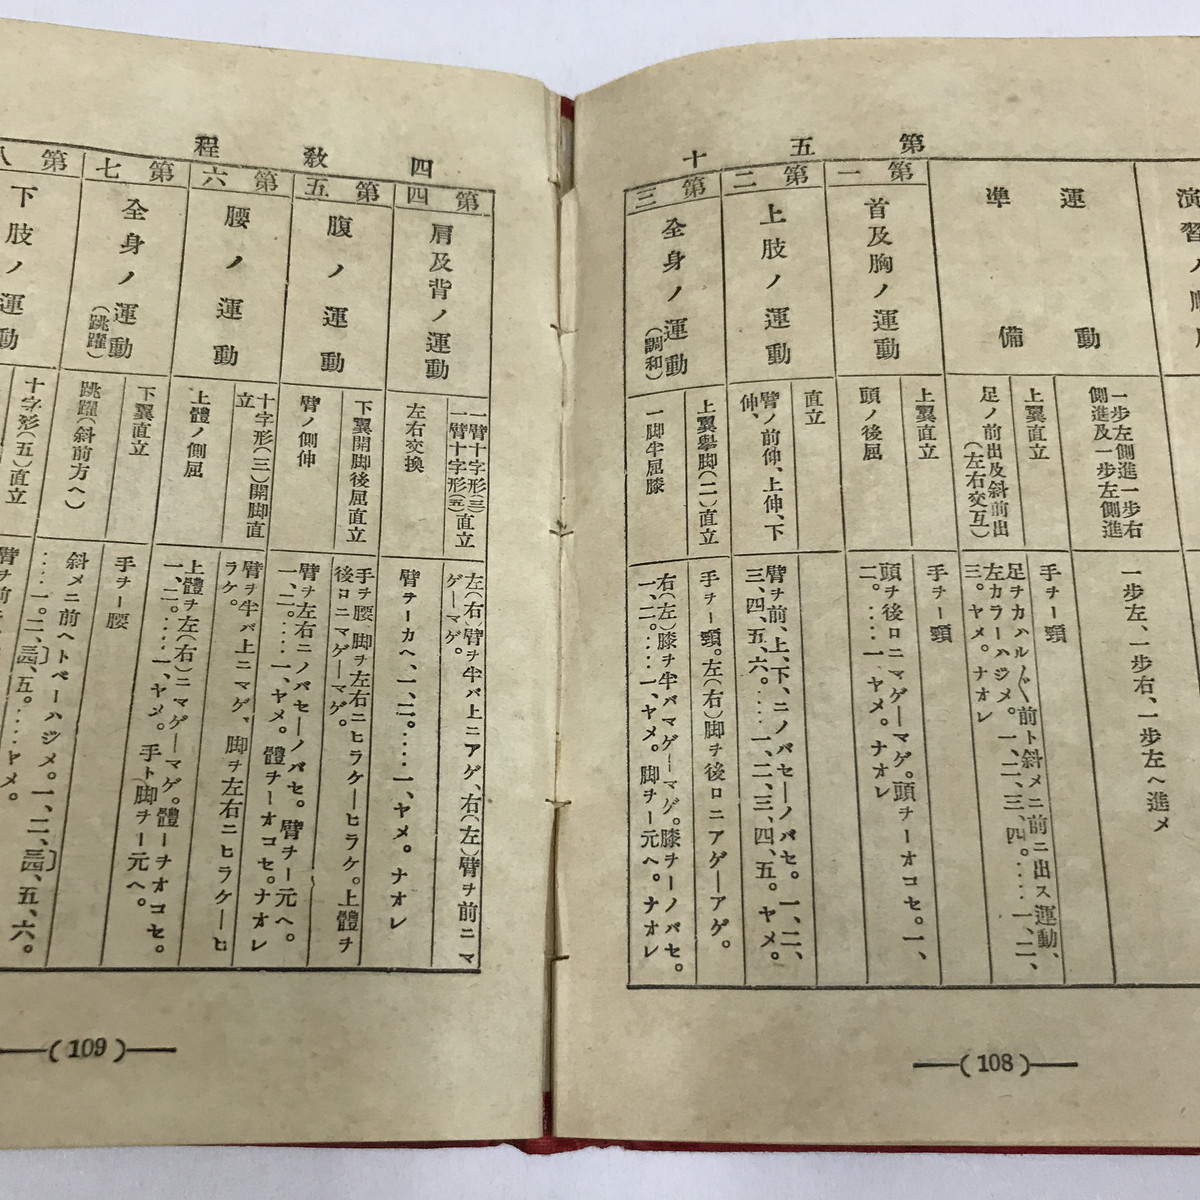 第五十
四教程
演習ノ順序
運動
準備
一步左側進一步右
側進及一步左側進
一步左、一步右、一步左ヘ進メ
上翼直立
手チー頸
足ノ前出及斜前出
(左右交互)
足ヲカハル〴〵前ト斜メニ前ニ出ス運動、
左カラーハジメ。一、二、三、四。‥‥一、二、
三。ヤメ。ナオレ
第一
首及胸ノ運動
上翼直立
手チー頸
頭ノ後屈
頭ヲ後ロニマゲーマゲ。頭チーオコセ。一、
二。‥‥一、ヤメ。ナオレ
第二
上肢ノ運動
直立
臂ノ前伸、上伸、下
伸、
臂ヲ前、上、下、ニノバセーノバセ。一、二、
三、四、五、六。‥‥一、二、三、四、五。ヤメ。
第三
全身ノ運動
(調和)
上翼擧脚(二)直立
手チー頸。左(右)脚ヲ後ロニアゲーアゲ。
一脚半屈膝
右(左)膝ヲ半バマゲーマゲ。膝チーノバセ。
一、二。‥‥一、ヤメ。脚チー元ヘ。ナオレ
(108)
第四
肩及背ノ運動
一臂十字形(三)
一臂十字形(五)直立
左(右)臂ヲ半バ上ニアゲ、右(左)臂ヲ前ニマ
ゲーマゲ。
左右交換
臂チーカヘ、一、二。‥‥一、ヤメ。ナオレ
第五
腹ノ運動
下翼開脚後屈直立
手チ腰、脚ヲ左右ニヒラケーヒラケ。上體ヲ
後ロニマゲーマゲ。
臂ノ側伸
臂ヲ左右ニノバセーノバセ。臂チー元ヘ。
一、二。‥‥一、ヤメ。體チーオコセ。ナオレ
第六
腰ノ運動
十字形(三)開脚直
立
臂ヲ半バ上ニマゲ、脚ヲ左右ニヒラケーヒ
ラケ。
上體ノ側屈
上體ヲ左(右)ニマゲーマゲ。體ーチオコセ。
一、二。‥‥一、ヤメ。手ト脚チー元ヘ。
第七
全身ノ運動
(跳躍)
下翼直立
手チー腰
跳躍(斜前方ヘ)
斜メニ前ヘトベーハジメ。一、二、三四、五、六。
‥‥一。二、三四、五。‥‥ヤメ。
第八
下肢ノ運動
十字形(五)直立
臂ヲ前
(109)